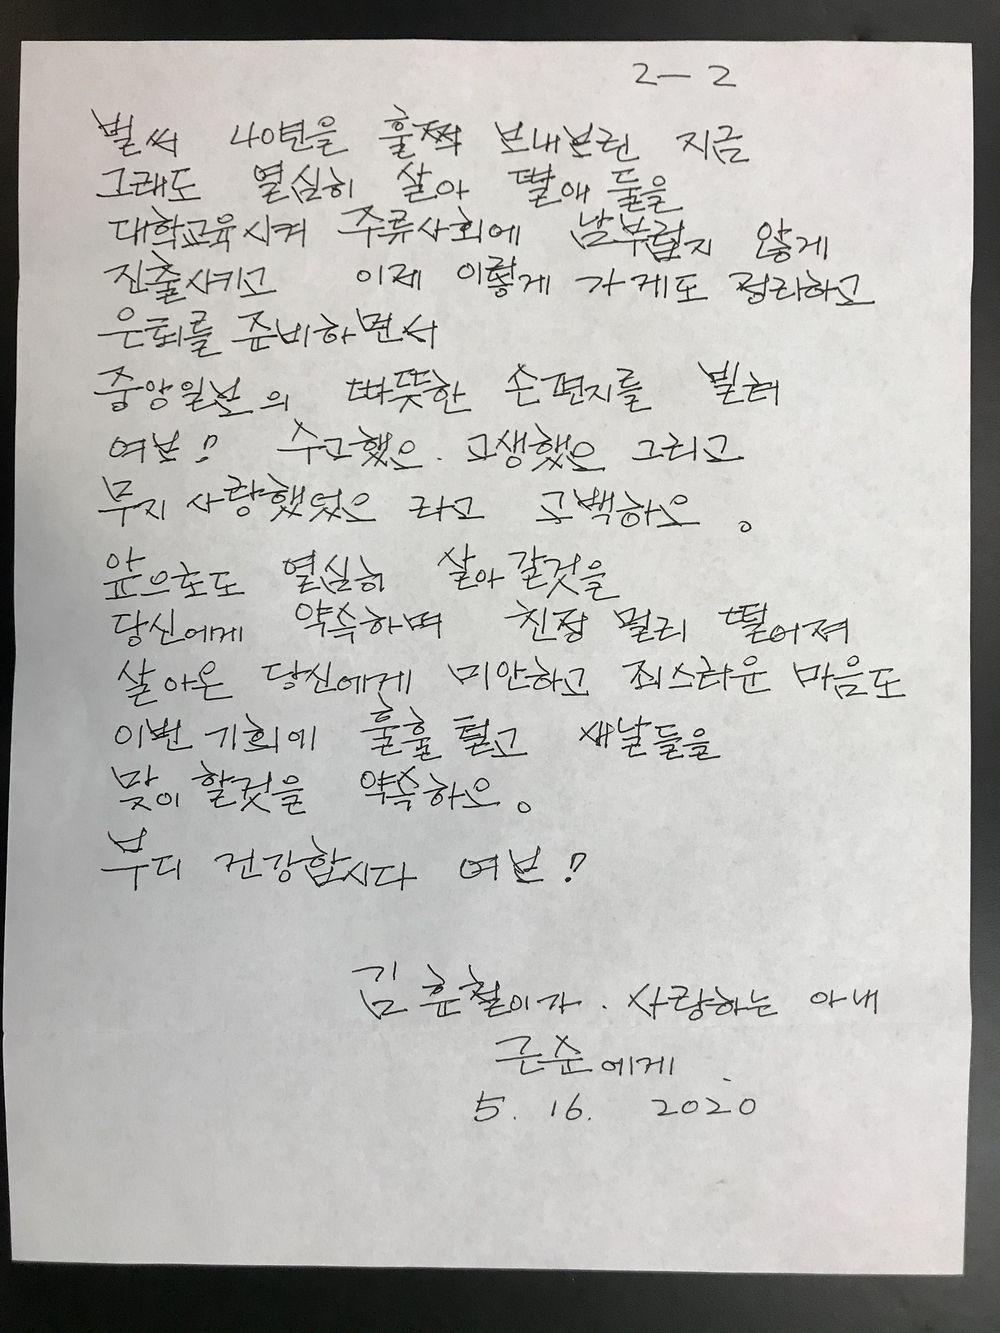 2-2
벌써 40년을 훌쩍 보내브린 지금
그래도 열심히 살아 딸애 둘을
대학교육시켜 주류사회에 남부럽지 않게
진출시키고 이제 이렇게 가게도 정리하고
은퇴를 준비하면서
중앙일보의 따뜻한 손편지를 빌혀
여보! 수고했오. 고생했오 그리고
무지 사랑했었오 라고 고백하오.
앞으로도 열심히 살아갈것을
당신에게 약속하며 친정 멀리 떨어져
살아온 당신에게 미안하고 죄스러운 마음도
이번 기회에 훌훌 털고 새날들을
맞이할것을 약속하오.
부디 건강합시다 여보!
김훈철이가. 사랑하는 아내
근순에게
5. 16. 2020